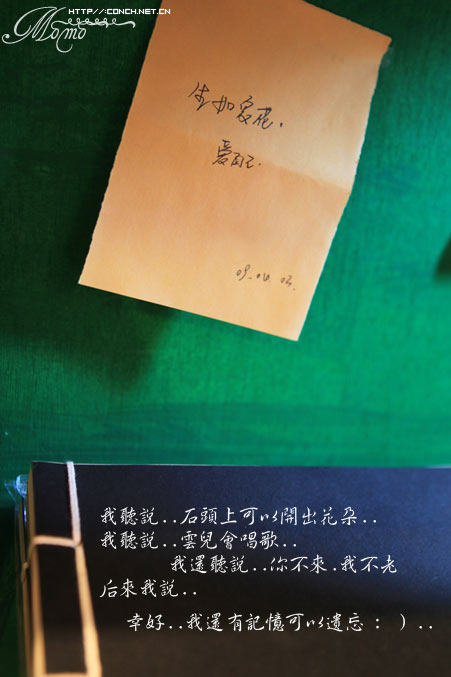 Momo
HTTP://CONCH.NET.CN
生如夏花.
09.04.03.
我聽説..石頭上可以開出花朵..
我聽説..雲兒會唱歌..
我還聽説..你不來.我不老
后來我説..
幸好..我還有記憶可以遺忘：）..